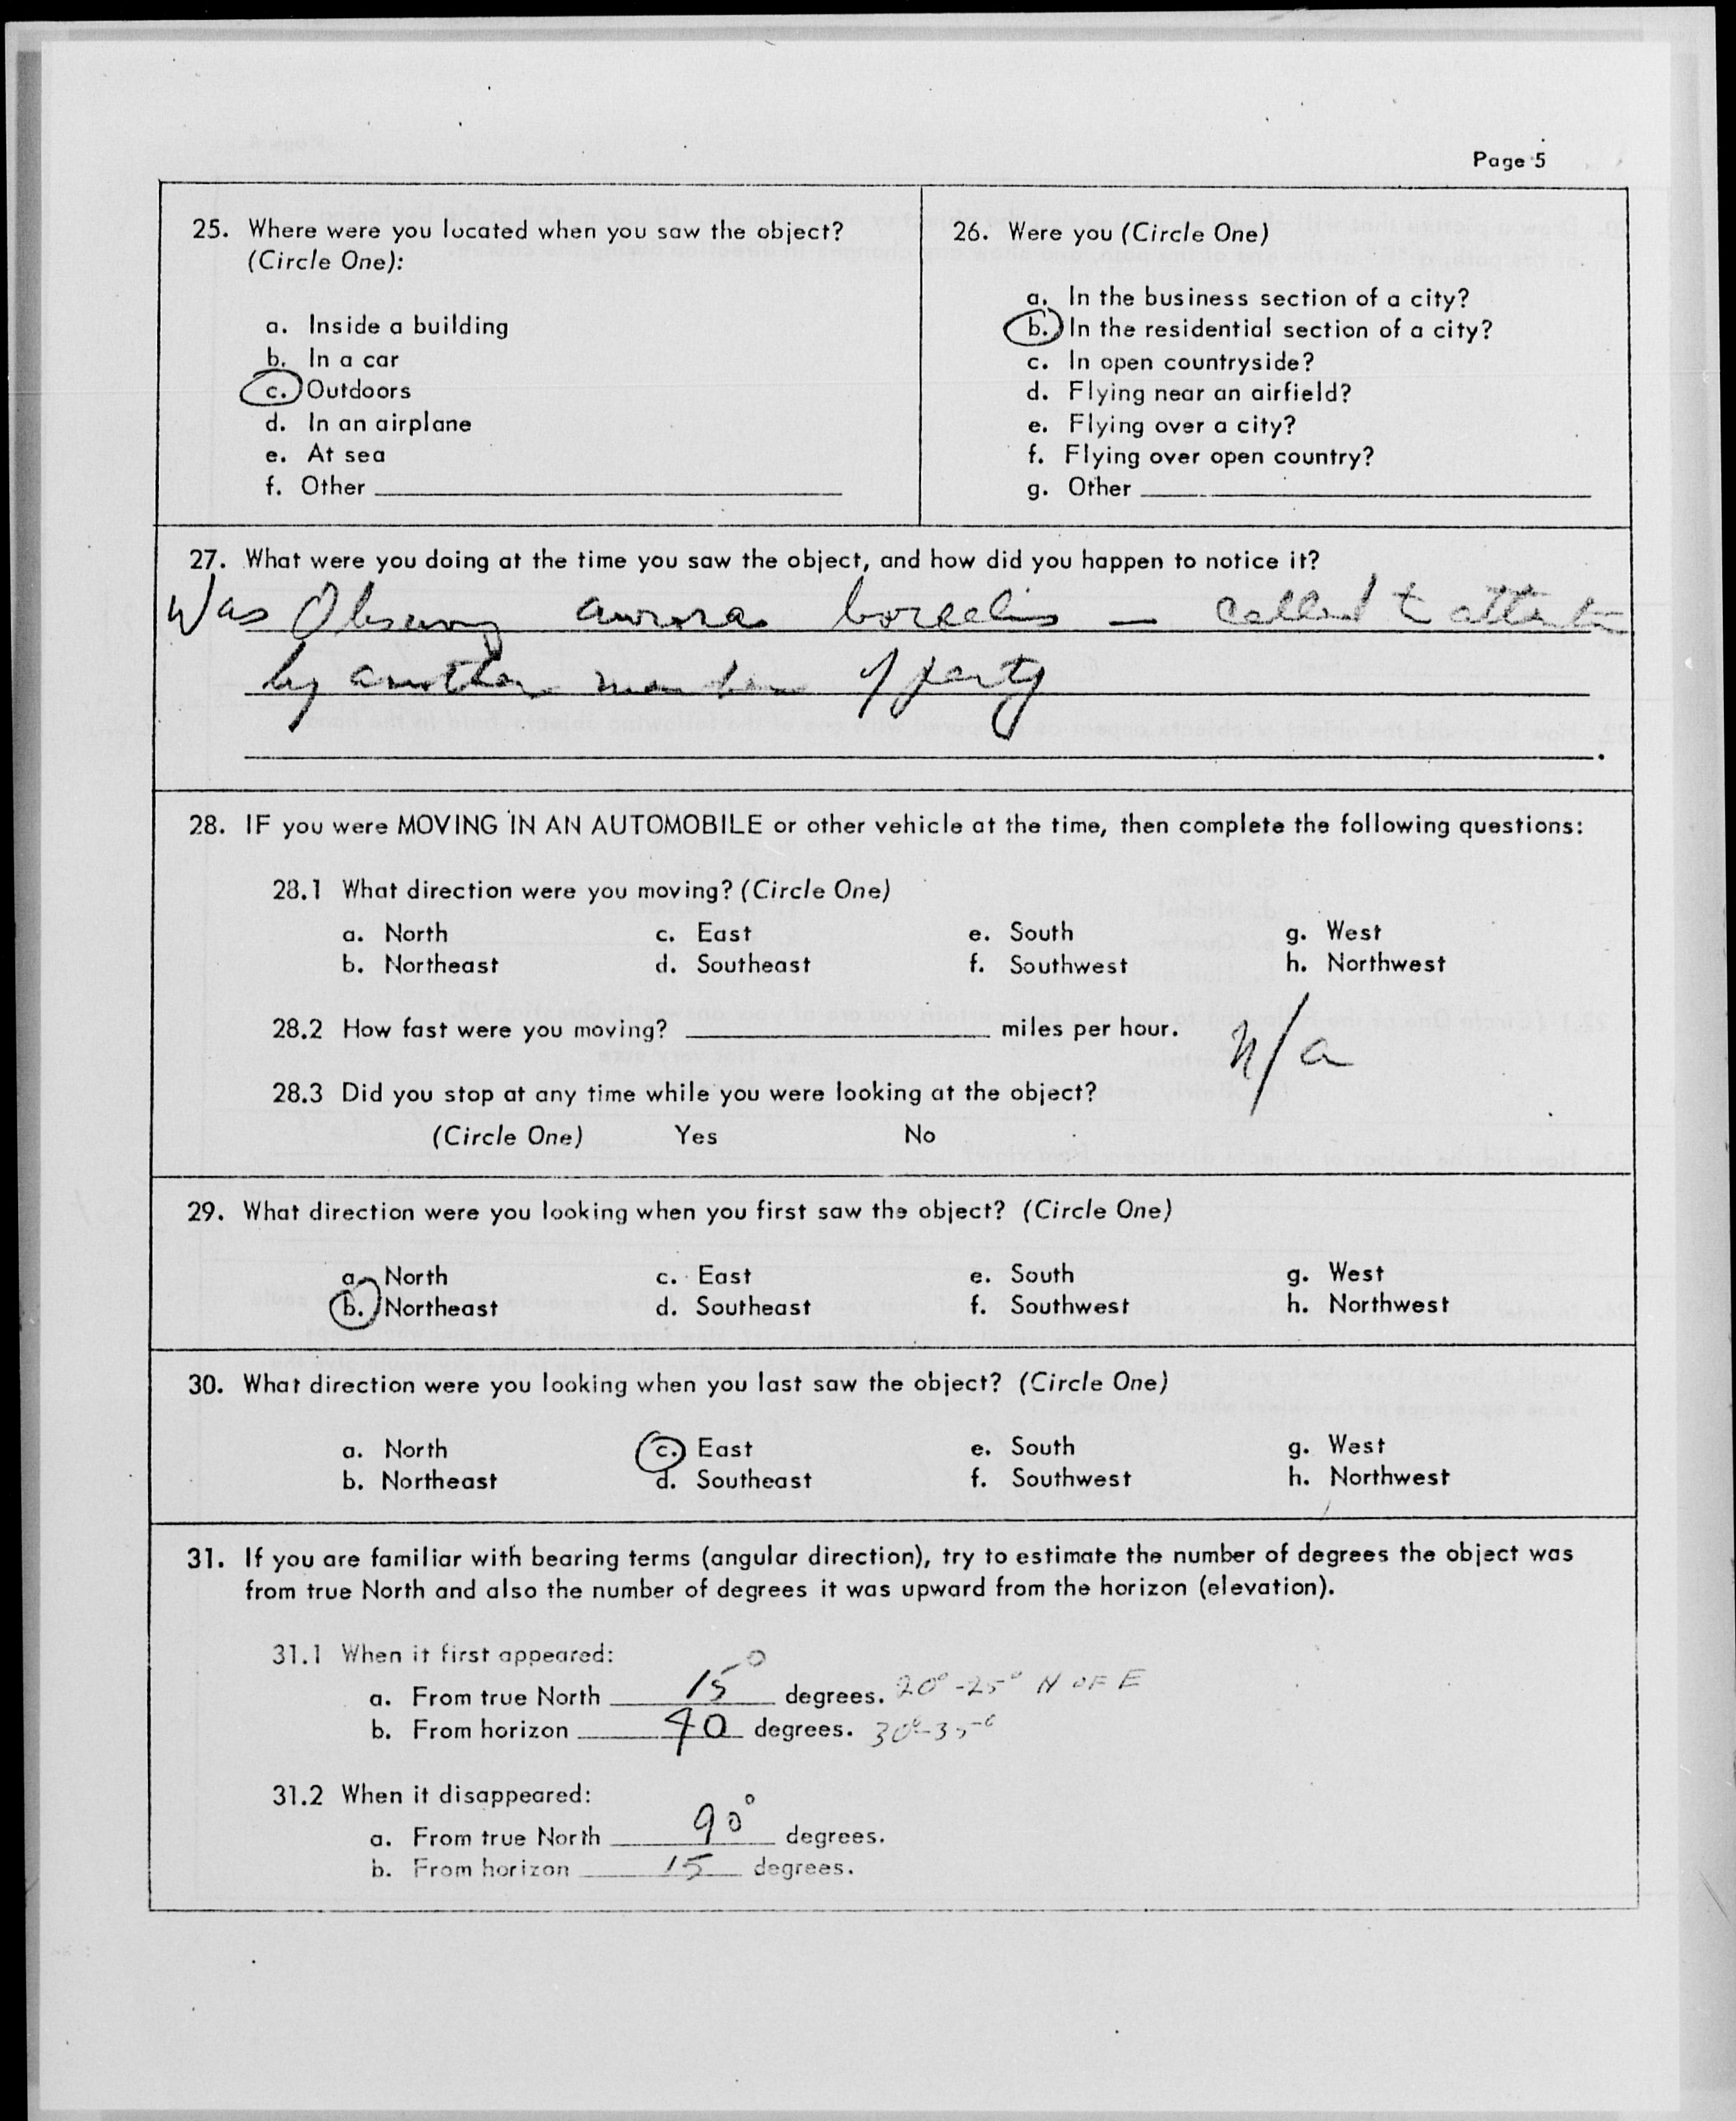 Page 5
25. Where were you located when you saw the object?
(Circle One):
a. Inside a building
b. In a car
c. Outdoors
d. In an airplane
e. At sea
f. Other
26. Were you (Circle One)
a. In the business section of a city?
b. In the residential section of a city?
c. In open countryside?
d. Flying near an airfield?
e. Flying over a city?
f. Flying over open country?
g. Other
27. What were you doing at the time you saw the object, and how did you happen to notice it?
Was Observing aurora borealis — called to attention
by another member of party
28. IF you were MOVING IN AN AUTOMOBILE or other vehicle at the time, then complete the following questions:
28.1 What direction were you moving? (Circle One)
a. North c. East e. South g. West
b. Northeast d. Southeast f. Southwest h. Northwest
28.2 How fast were you moving? miles per hour. n/a
28.3 Did you stop at any time while you were looking at the object?
(Circle One) Yes No
29. What direction were you looking when you first saw the object? (Circle One)
a. North c. East e. South g. West
b. Northeast d. Southeast f. Southwest h. Northwest
30. What direction were you looking when you last saw the object? (Circle One)
a. North c. East e. South g. West
b. Northeast d. Southeast f. Southwest h. Northwest
31. If you are familiar with bearing terms (angular direction), try to estimate the number of degrees the object was
from true North and also the number of degrees it was upward from the horizon (elevation).
31.1 When it first appeared:
a. From true North 15° degrees. 20°-25° N OF E
b. From horizon 40 degrees. 30°-35°
31.2 When it disappeared:
a. From true North 90° degrees.
b. From horizon 15 degrees.